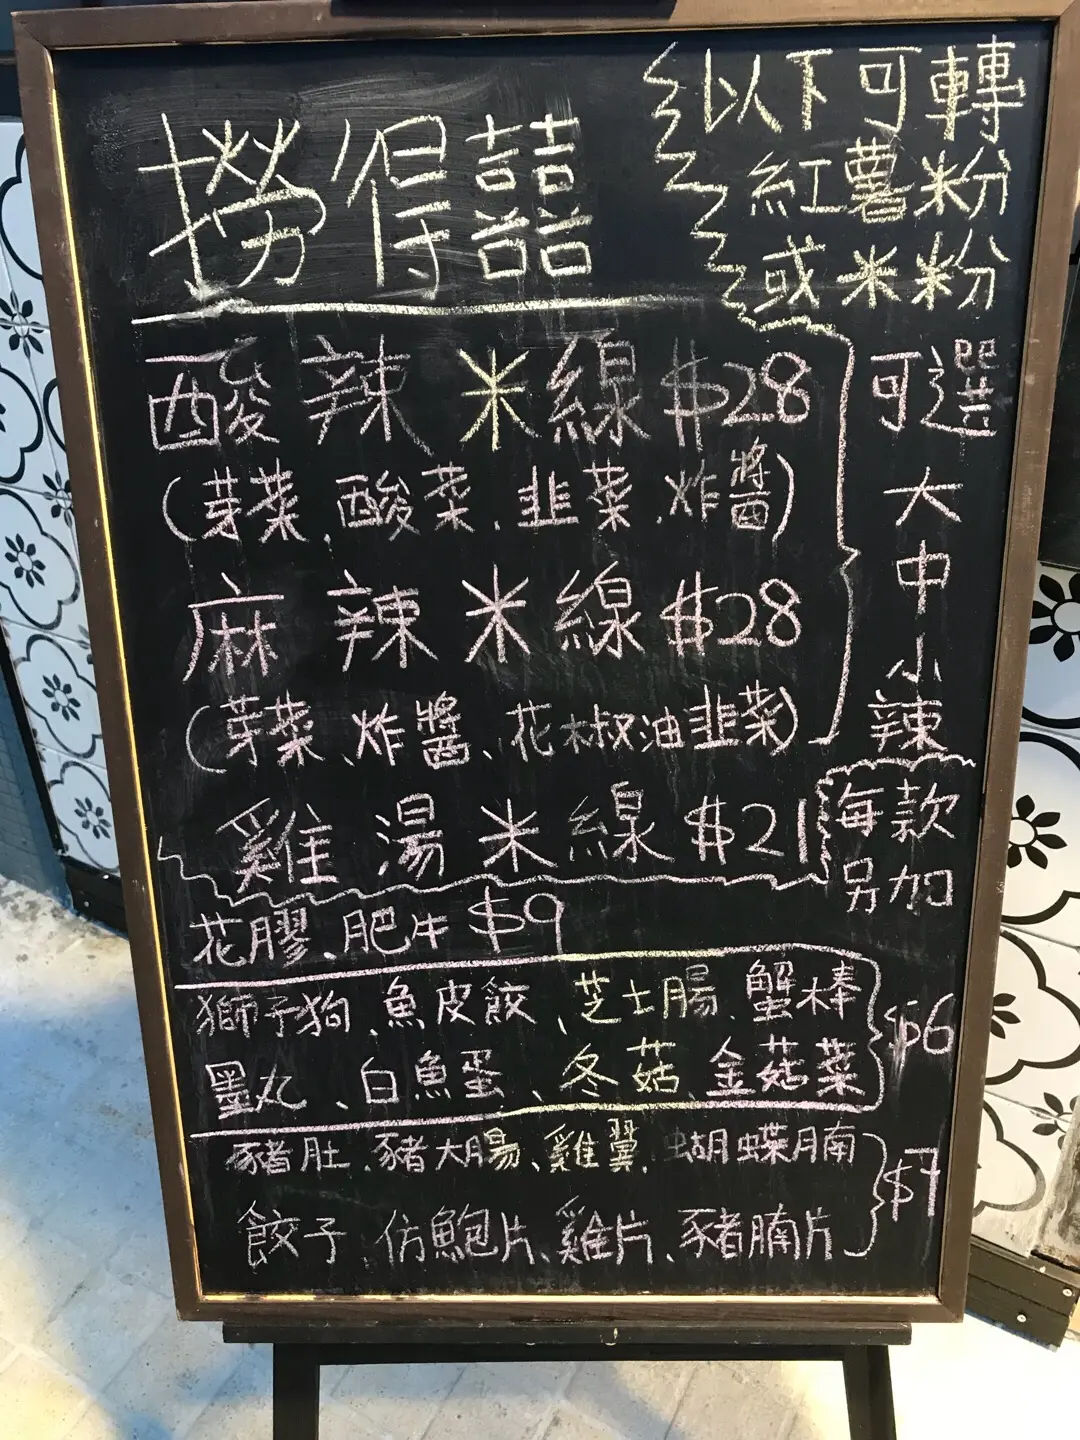 撈得囍
以下可轉
紅薯米粉
或米粉
酸辣米線$28
(芽菜、酸菜、韭菜、炸醬)
麻辣米線$28
(芽菜、炸醬、花椒油韭菜)
可選
大
中
小
辣
雞湯米線$21
每款
另加
花膠、肥牛$9
獅子狗、魚皮餃、芝士腸、蟹棒
墨丸、白魚蛋、冬菇、金菇菜
$6
豬肚、豬大腸、雞翼、蝴蝶腩
餃子、仿鮑片、雞片、豬腩片
$7